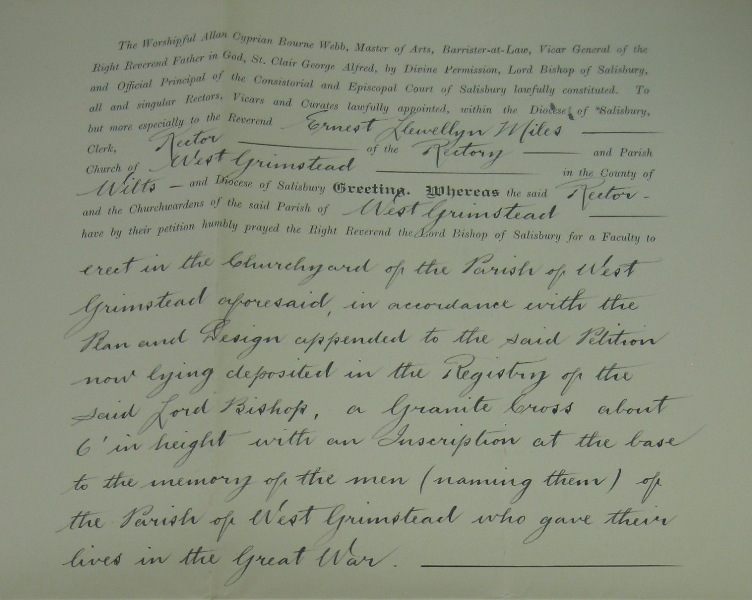 The Worshipful Allan Cyprian Bourne Webb, Master of Arts, Barrister-at-Law, Vicar General of the
Right Reverend Father in God, St. Clair George Alfred, by Divine Permission, Lord Bishop of Salisbury,
and Official Principal of the Consistorial and Episcopal Court of Salisbury lawfully constituted. To
all and singular Rectors, Vicars and Curates lawfully appointed, within the Diocese of Salisbury,
but more especially to the Reverend Ernest Llewellyn Miles
Clerk, Rector of the Rectory and Parish
Church of West Grimstead in the County of
Wilts – and Diocese of Salisbury Greeting. Whereas the said Rector -
and the Churchwardens of the said Parish of West Grimstead
have by their petition humbly prayed the Right Reverend the Lord Bishop of Salisbury for a Faculty to
erect in the Churchyard of the Parish of West
Grimstead aforesaid, in accordance with the
Plan and Design appended to the said Petition
now lying deposited in the Registry of the
said Lord Bishop, a Granite Cross about
6' in height with an Inscription at the base
to the memory of the men (naming them) of
the Parish of West Grimstead who gave their
lives in the Great War.